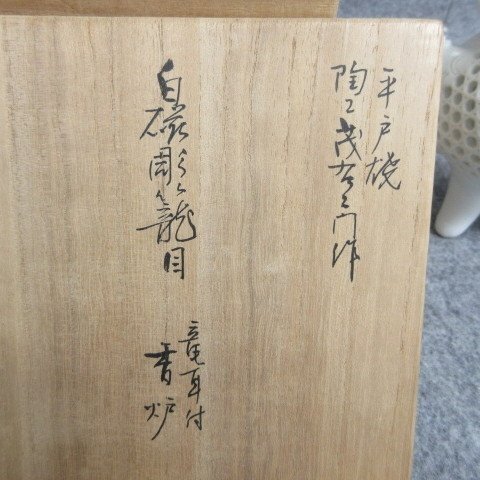 平戸焼
陶工茂右ヱ門作
白磁彫り籠目
竜耳付
香炉